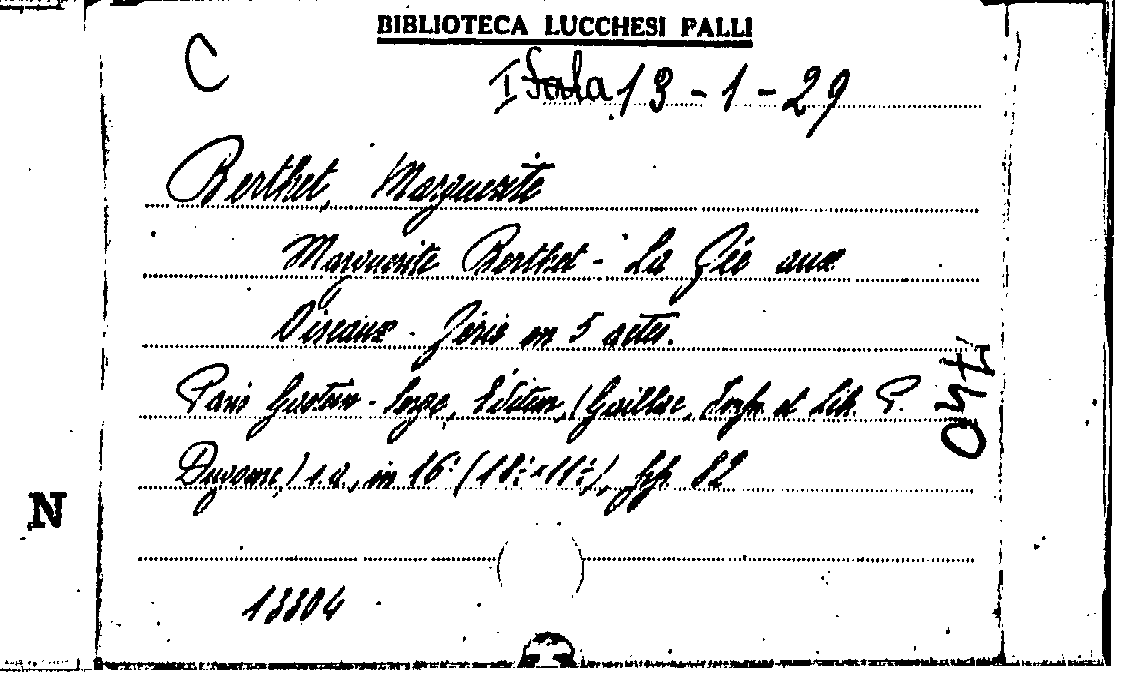 BIBLIOTECA LUCCHESI PALLI
C
I Sala 13-1-29
Berthet, Marguerite
Marguerite Berthet - La Fée aux
Oiseaux - Férie en 5 actes.
Paris Editeur, (Gaillac, Imp. et Lib. P.
s.d., in 16° (18½×11½), pp. 82
N
13304